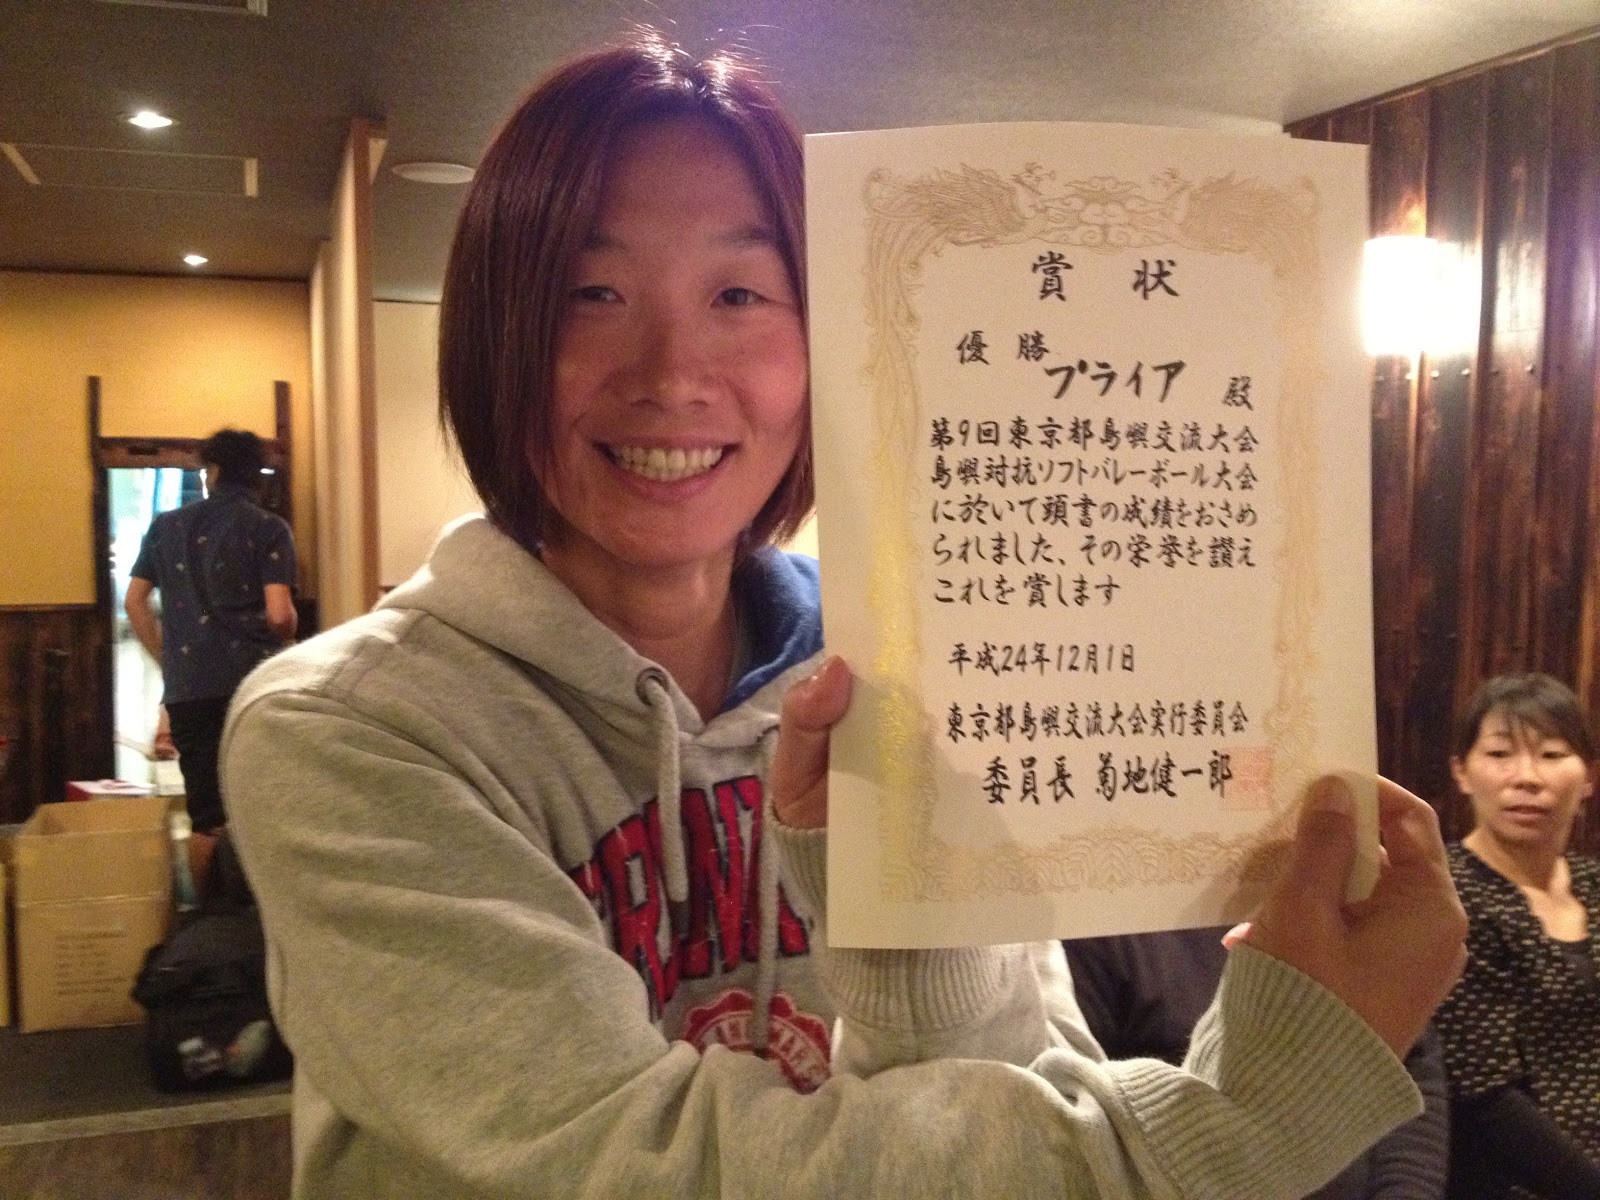 賞 状
優 勝
プライア 殿
第9回東京都島嶼交流大会
島嶼対抗ソフトバレーボール大会
に於いて頭書の成績をおさめ
られました、その栄誉を讃え
これを賞します
平成24年12月1日
東京都島嶼交流大会実行委員会
委員長 菊地健一郎